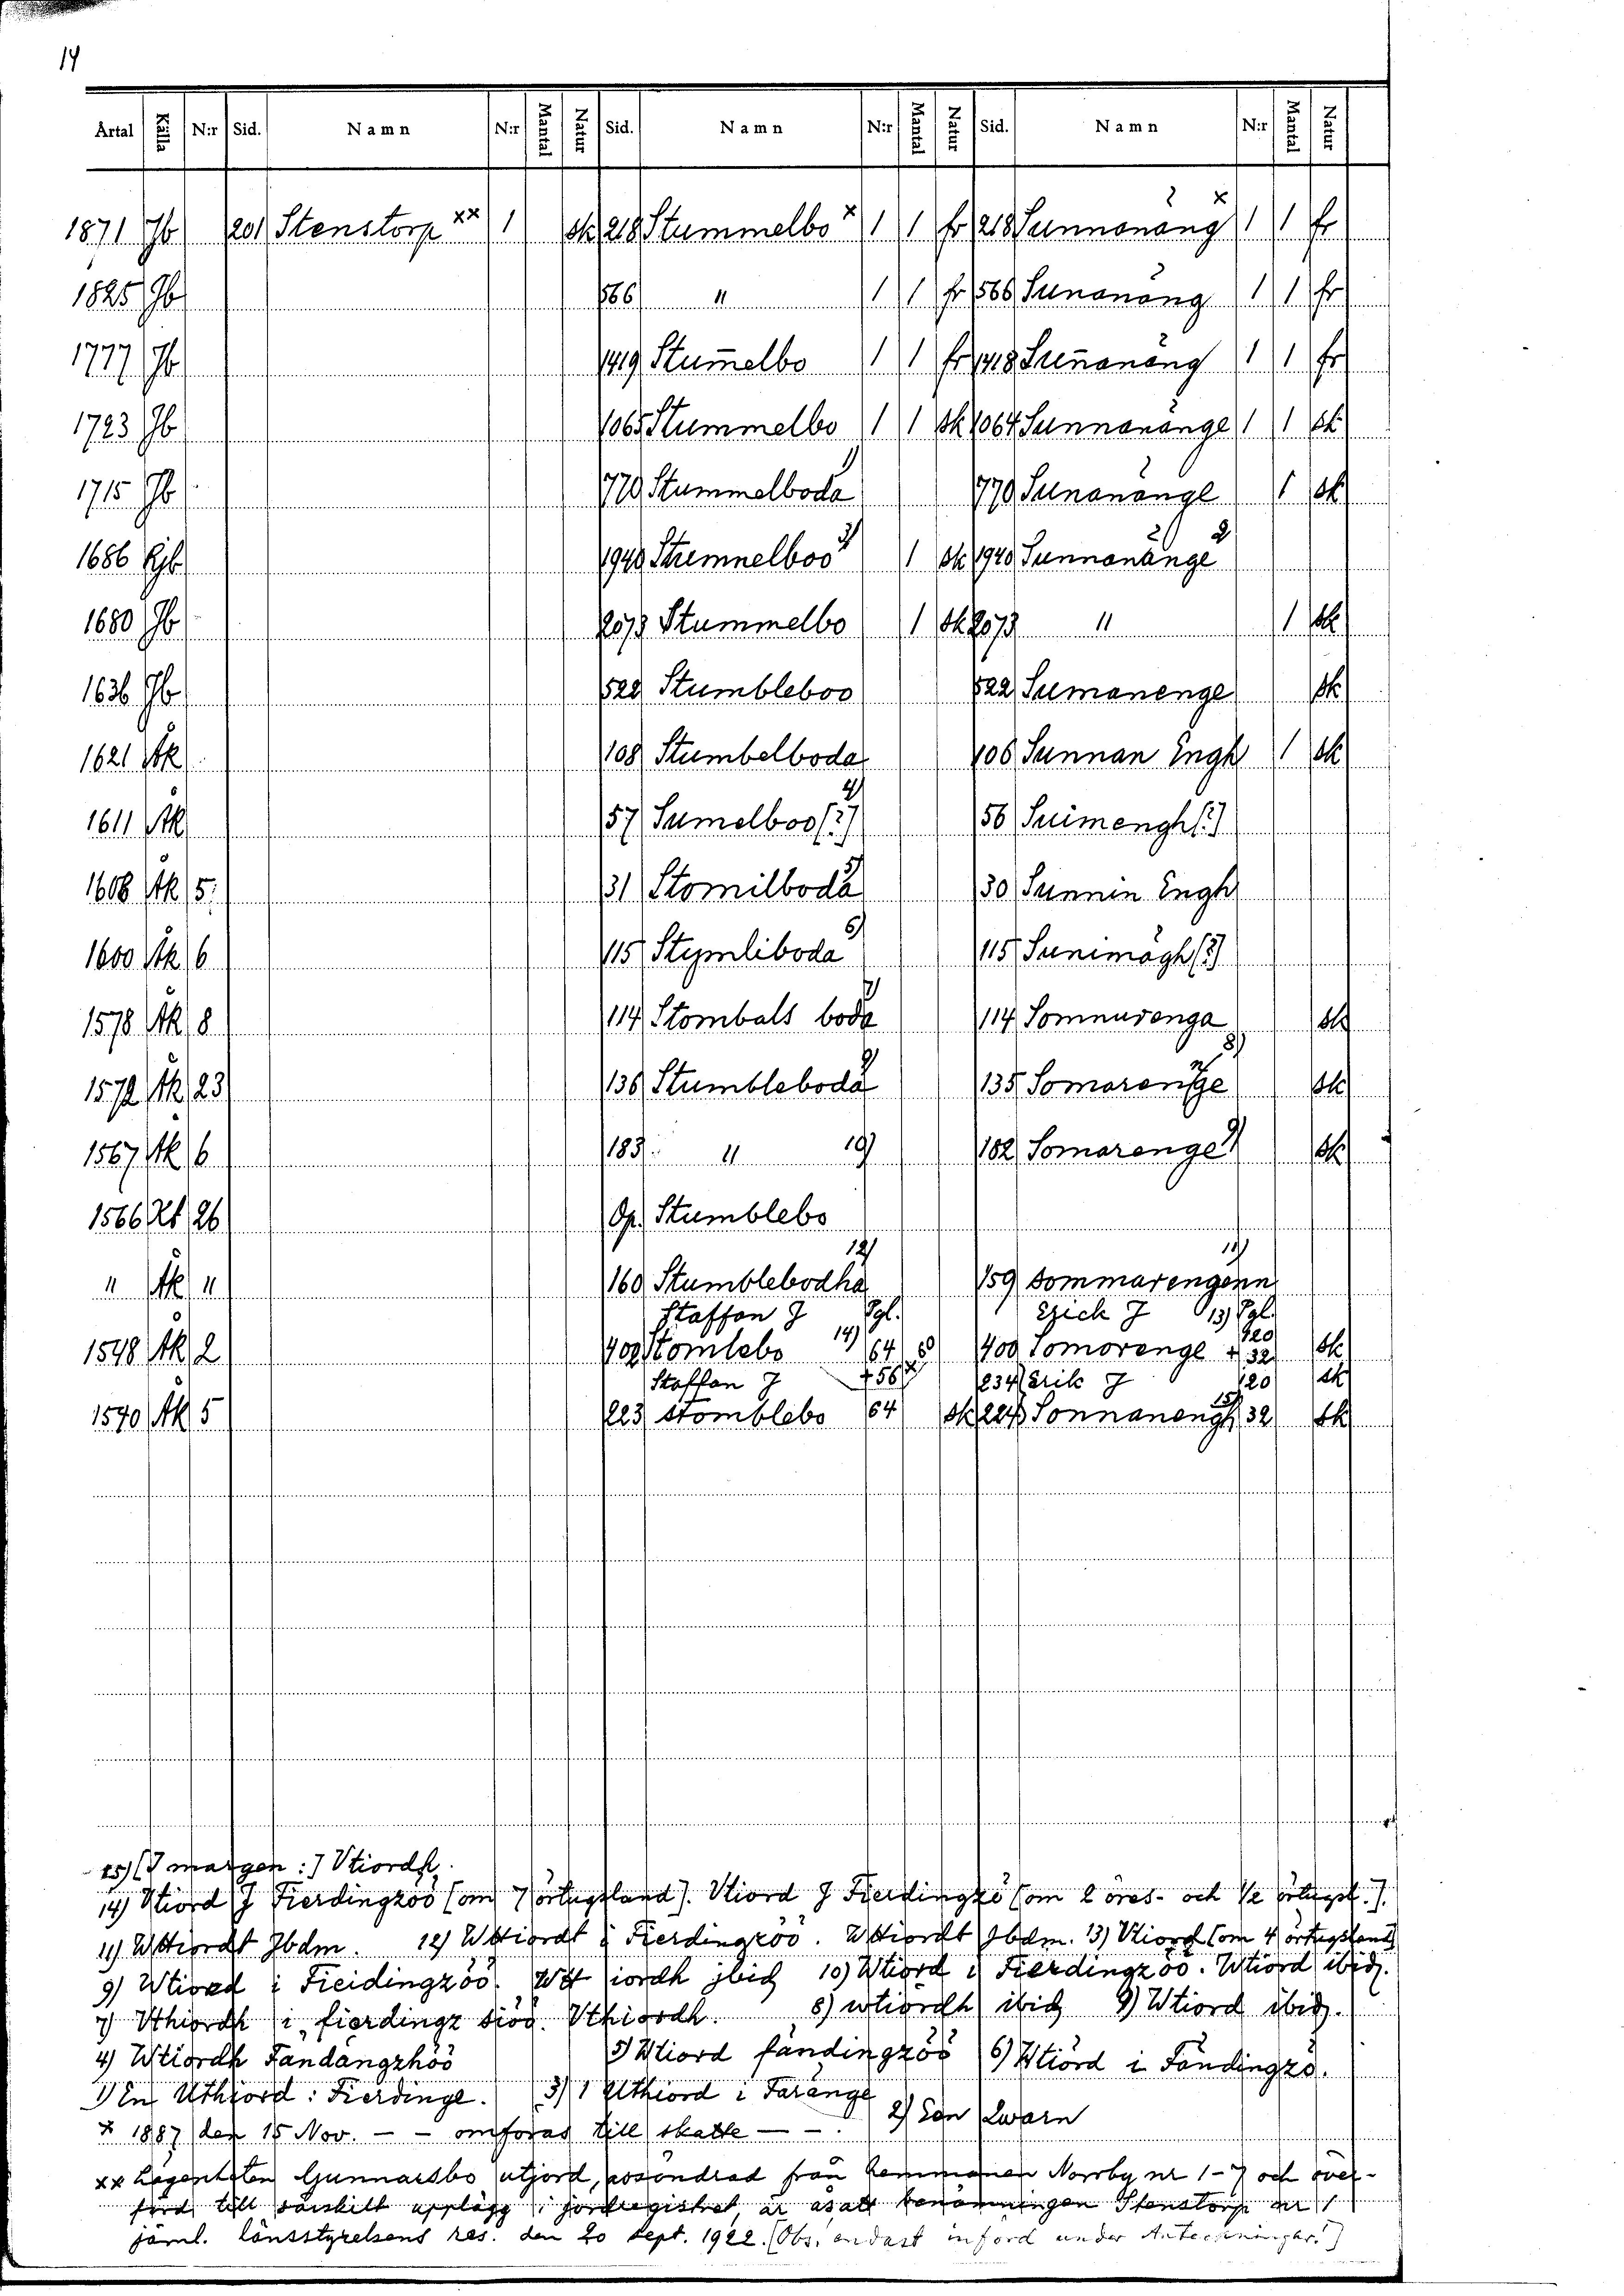 14
Årtal Källa N:r Sid. Namn N:r Mantal Natur Sid. Namn N:r Mantal Natur Sid. Namn N:r Mantal Natur
1871 Jb 201 Stenstorp xx 1 sk 218 Stummelbo x 1 1 fr 218 Sunnanäng x 1 1 fr
1825 Jb 566 " 1 1 fr 566 Sunanäng 1 1 fr
1777 Jb 1419 Stum̅elbo 1 1 fr 1418 Sun̅anäng 1 1 fr
1723 Jb 1065 Stummelbo 1 1 sk 1064 Sunnanänge 1 1 sk
1715 Jb 770 Stummelboda 1) 770 Sunanänge 1 sk
1686 Kjb 1940 Stummelboo 3) 1 sk 1940 Sunnanänge 2)
1680 Jb 2073 Stummelbo 1 sk 2073 " 1 sk
1636 Jb 522 Stumbleboo 522 Sumanenge sk
1621 Åk 108 Stumbelboda 106 Sunnan Engh 1 sk
1611 Åk 57 Sumelboo [?] 4) 56 Suimengh [?]
1608 Åk 5 31 Stomilboda 5) 30 Sunnin Engh
1600 Åk 6 115 Stymliboda 6) 115 Sunimägh [?]
1578 Åk 8 114 Stombals boda 7) 114 Somnurenga sk
1572 Åk 23 136 Stumbleboda 9) 135 Somarentge 8) sk
1567 Åk 6 183 " 10) 182 Somarenge 9) sk
1566 26 Op. Stumblebo
" Åk " 160 Stumblebodha 12) 159 sommarengenn 11)
Staffan J Pgl. Erick J 13) Pgl.
1548 Åk 2 402 Stomlebo 14) 64 400 Somorenge 120 + 32 sk
Staffan J + 56 234 Erik J 120 sk
1540 Åk 5 223 stomblebo 64 sk 224 Sonnanengh 15) 32 sk
15) [I margen:] Vtiordh.
14) Vtiord J Fierdingzöö [om 7 örtugsland]. Vtiord J Fierdingzö [om 2 öres- och 1/2 örtugsl.].
11) Wttiordt Jbdm. 12) Wttiordt i Fierdingzöö. Wttiordt Jbdm. 13) Vtiord [om 4 örtugsland]
9) Wtiord i Fieidingzöö. Wtt iordh jbid 10) Wtiord i Fierdingzöö. Wtiord ibid.
7) Vthiordh i fierdingz siöö. Vthiordh. 8) wtiordh ibid 9) Wtiord ibid.
4) Wtiordh Fandångzhöö 5) Wtiord fändingzöö 6) Wtiörd i Föndingzö.
1) En Uthiord: Fierdinge. 3) 1 Uthiord i Faränge 2) Een Qwarn
x 1887 den 15 Nov. - - omföras till skatte - - .
xx Lägenheten Gunnarsbo utjord, avsöndrad från hemmanen Norrby nr 1-7 och över-
förd till särskilt upplägg i jordregistret, är åsatt benämningen Stenstorp nr 1
jäml. länsstyrelsens res. den 20 sept. 1922. [Obs. endast införd under Anteckningar!]